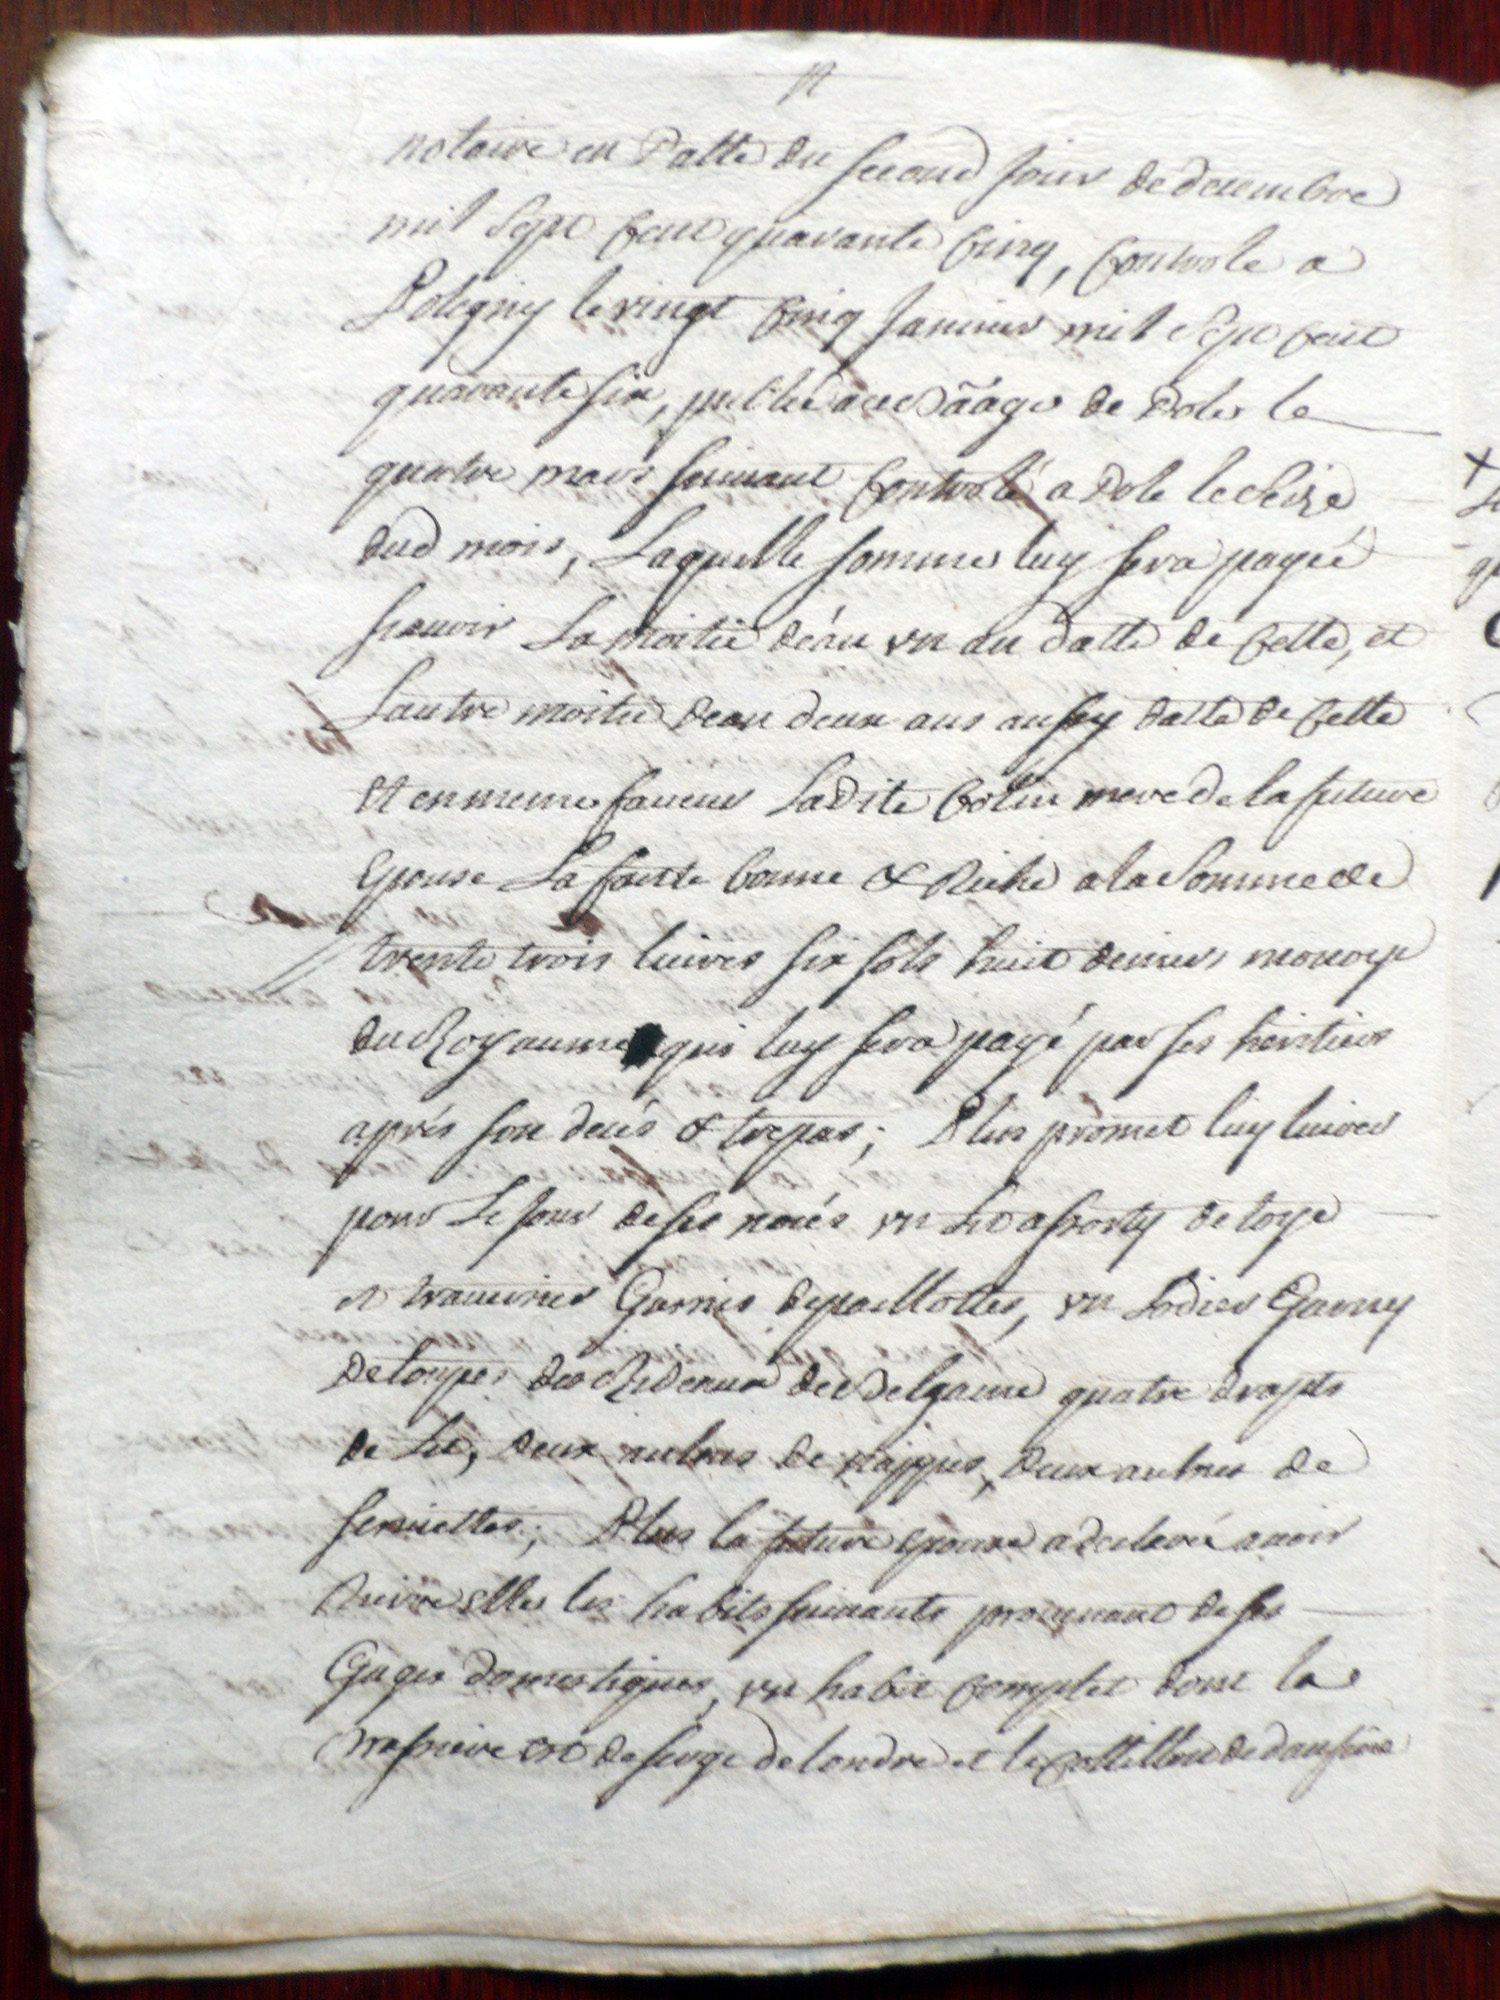 notaire en Datte du second Jour de decembre
mil Sept Cent quarante Cinq, Controle a
Poligny le vingt Cinq Janvier mil Sept Cent
quarante six, publié de Dole le
quatre mars suivant Controlé a Dole le seize
dud mois, Laquelle somme luy sera payée
scauoir La moitié un an datte de Cette, et
Lautre moitié dean deux ans aussy datte de Cette
Et en meme faueur Ladite Colin mere de la future
Epouse La faitte bonne & Riche a la Somme de
trente trois liures six sols huit deniers monoye
du Royaume qui luy sera payé par ses heritiers
aprés son decés & trepas; Plus promet luy liurer
pour Le Jour de ses nocés un Lit assorty de toye
et trauersier Garnis depaillottes, un Lodier Garny
de loupes des Rideaux de quatre draps
de Lit, deux autres de nappes, deux autres de
seruiettes; Plus la future epouse a declaré auoir
Riere elle les habits suiuants prouenant de ses
Gages domestiques, un habit Complet dont la
est de serge de londre et le Cottillon de